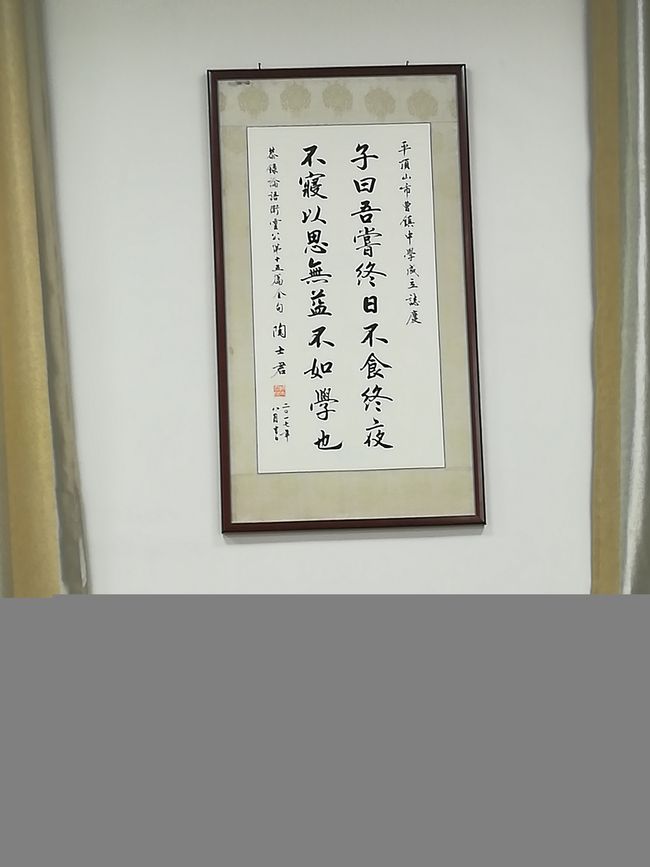 平頂山市曹鎮中學成立誌慶
子曰吾嘗終日不食終夜
不寢以思無益不如學也
恭錄論語衛靈公第十五篇金句 陶士君
二〇一七年
八月書